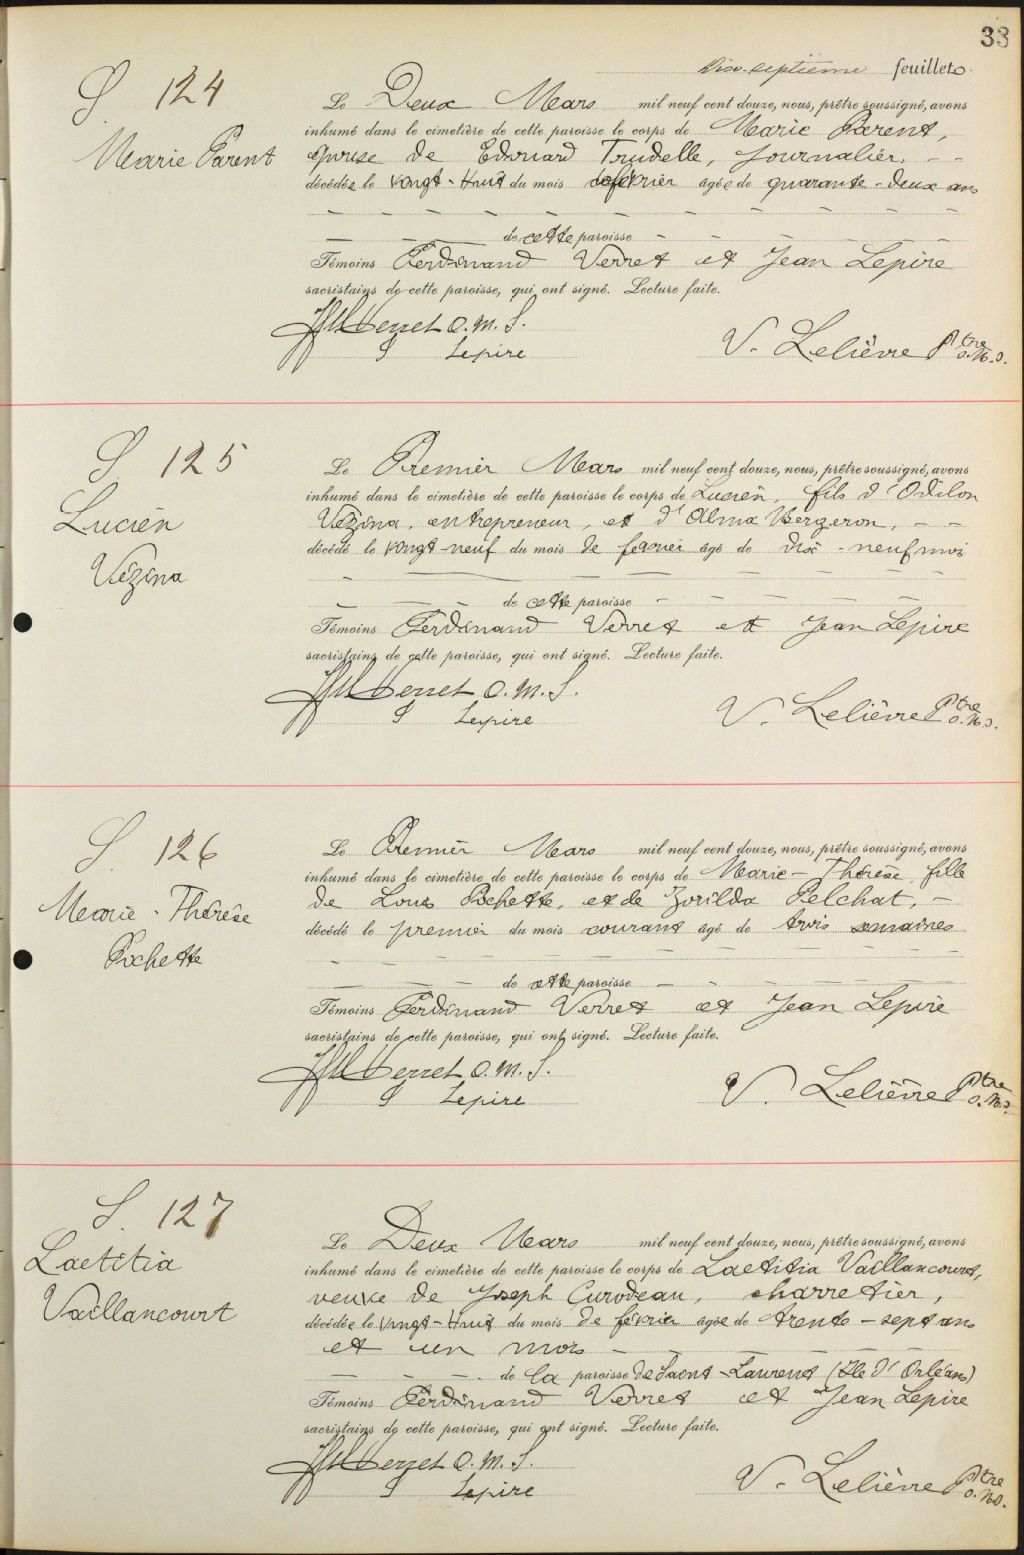 33
Dix-septième feuillet.
S. 124
Marie Parent
Le Deux Mars mil neuf cent douze, nous, prêtre soussigné, avons
inhumé dans le cimetière de cette paroisse le corps de Marie Parent,
épouse de Edouard Trudelle, journalier, - -
décédée le vingt-huit du mois de février âgée de quarante-deux ans
de cette paroisse
Témoins Ferdinand Verret et Jean Lepire
sacristains de cette paroisse, qui ont signé. Lecture faite.
Verret O.M.I.
J Lepire
V. Lelièvre Ptre
O.M.I.
S. 125
Lucien
Vézina
Le Premier Mars mil neuf cent douze, nous, prêtre soussigné, avons
inhumé dans le cimetière de cette paroisse le corps de Lucien, fils d'Odilon
Vézina, entrepreneur, et d'Alma Bergeron, - -
décédé le vingt-neuf du mois de février âgé de dix-neuf mois
de cette paroisse
Témoins Ferdinand Verret et Jean Lepire
sacristains de cette paroisse, qui ont signé. Lecture faite.
Verret O.M.I.
J Lepire
V. Lelièvre Ptre
O.M.I.
S. 126
Marie-Thérèse
Pichette
Le Premier Mars mil neuf cent douze, nous, prêtre soussigné, avons
inhumé dans le cimetière de cette paroisse le corps de Marie-Thérèse, fille
de Louis Pichette, et de Zorilda Pelchat, -
décédé le premier du mois courant âgé de trois semaines
de cette paroisse
Témoins Ferdinand Verret et Jean Lepire
sacristains de cette paroisse, qui ont signé. Lecture faite.
Verret O.M.I.
J Lepire
V. Lelièvre Ptre
O.M.I.
S. 127
Laetitia
Vaillancourt
Le Deux Mars mil neuf cent douze, nous, prêtre soussigné, avons
inhumé dans le cimetière de cette paroisse le corps de Laetitia Vaillancourt,
veuve de Joseph Curodeau, charretier,
décédée le vingt-huit du mois de février âgée de trente-sept ans
et un mois
de la paroisse de Saint-Laurent (Ile d'Orléans)
Témoins Ferdinand Verret et Jean Lepire
sacristains de cette paroisse, qui ont signé. Lecture faite.
Verret O.M.I.
J Lepire
V. Lelièvre Ptre
O.M.I.